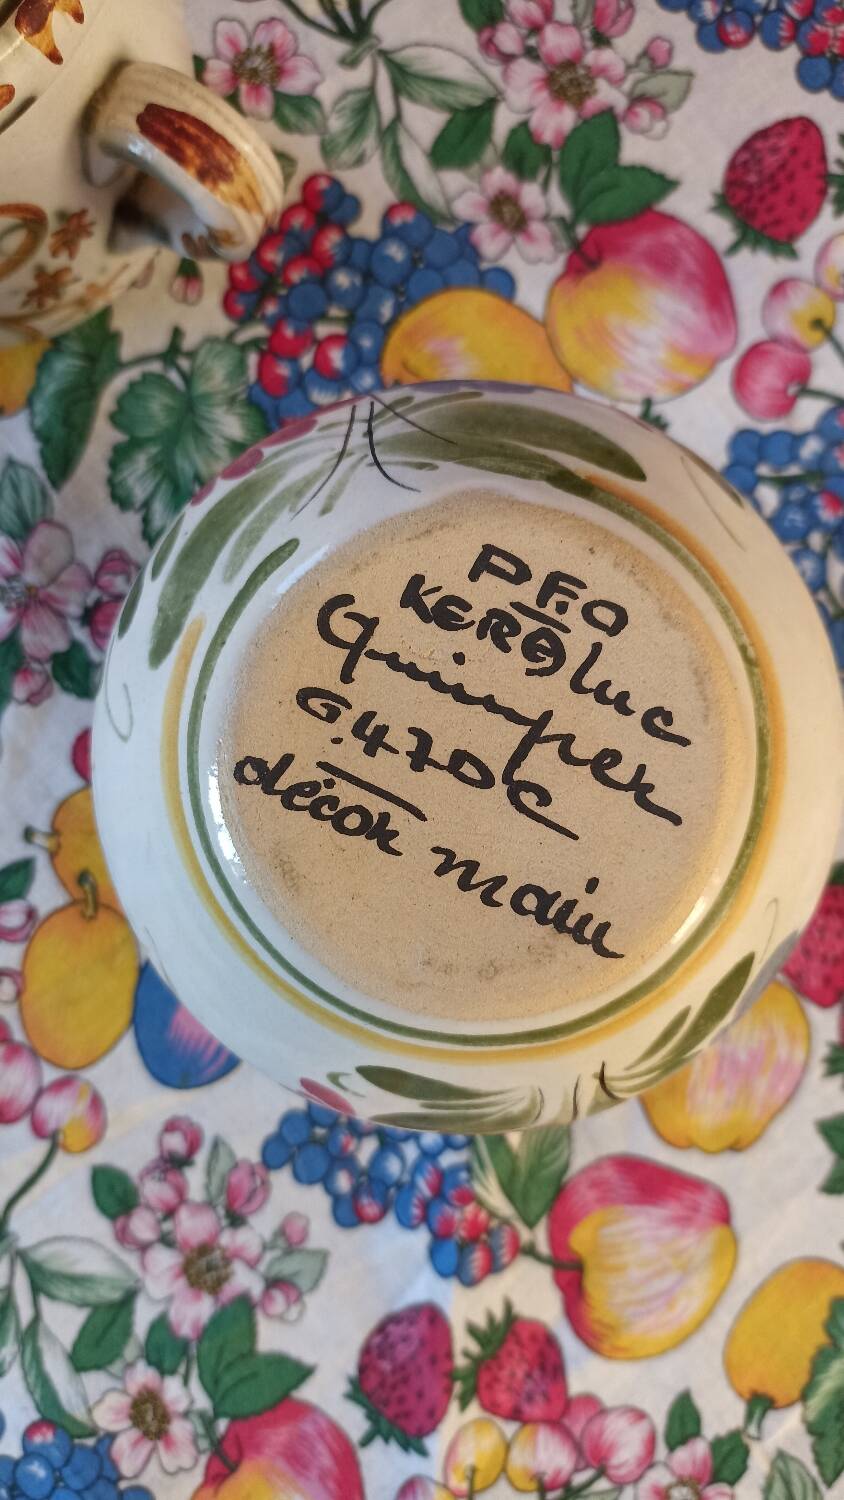 P.F.O
KERAluc
Quimper
G.470C
décor main